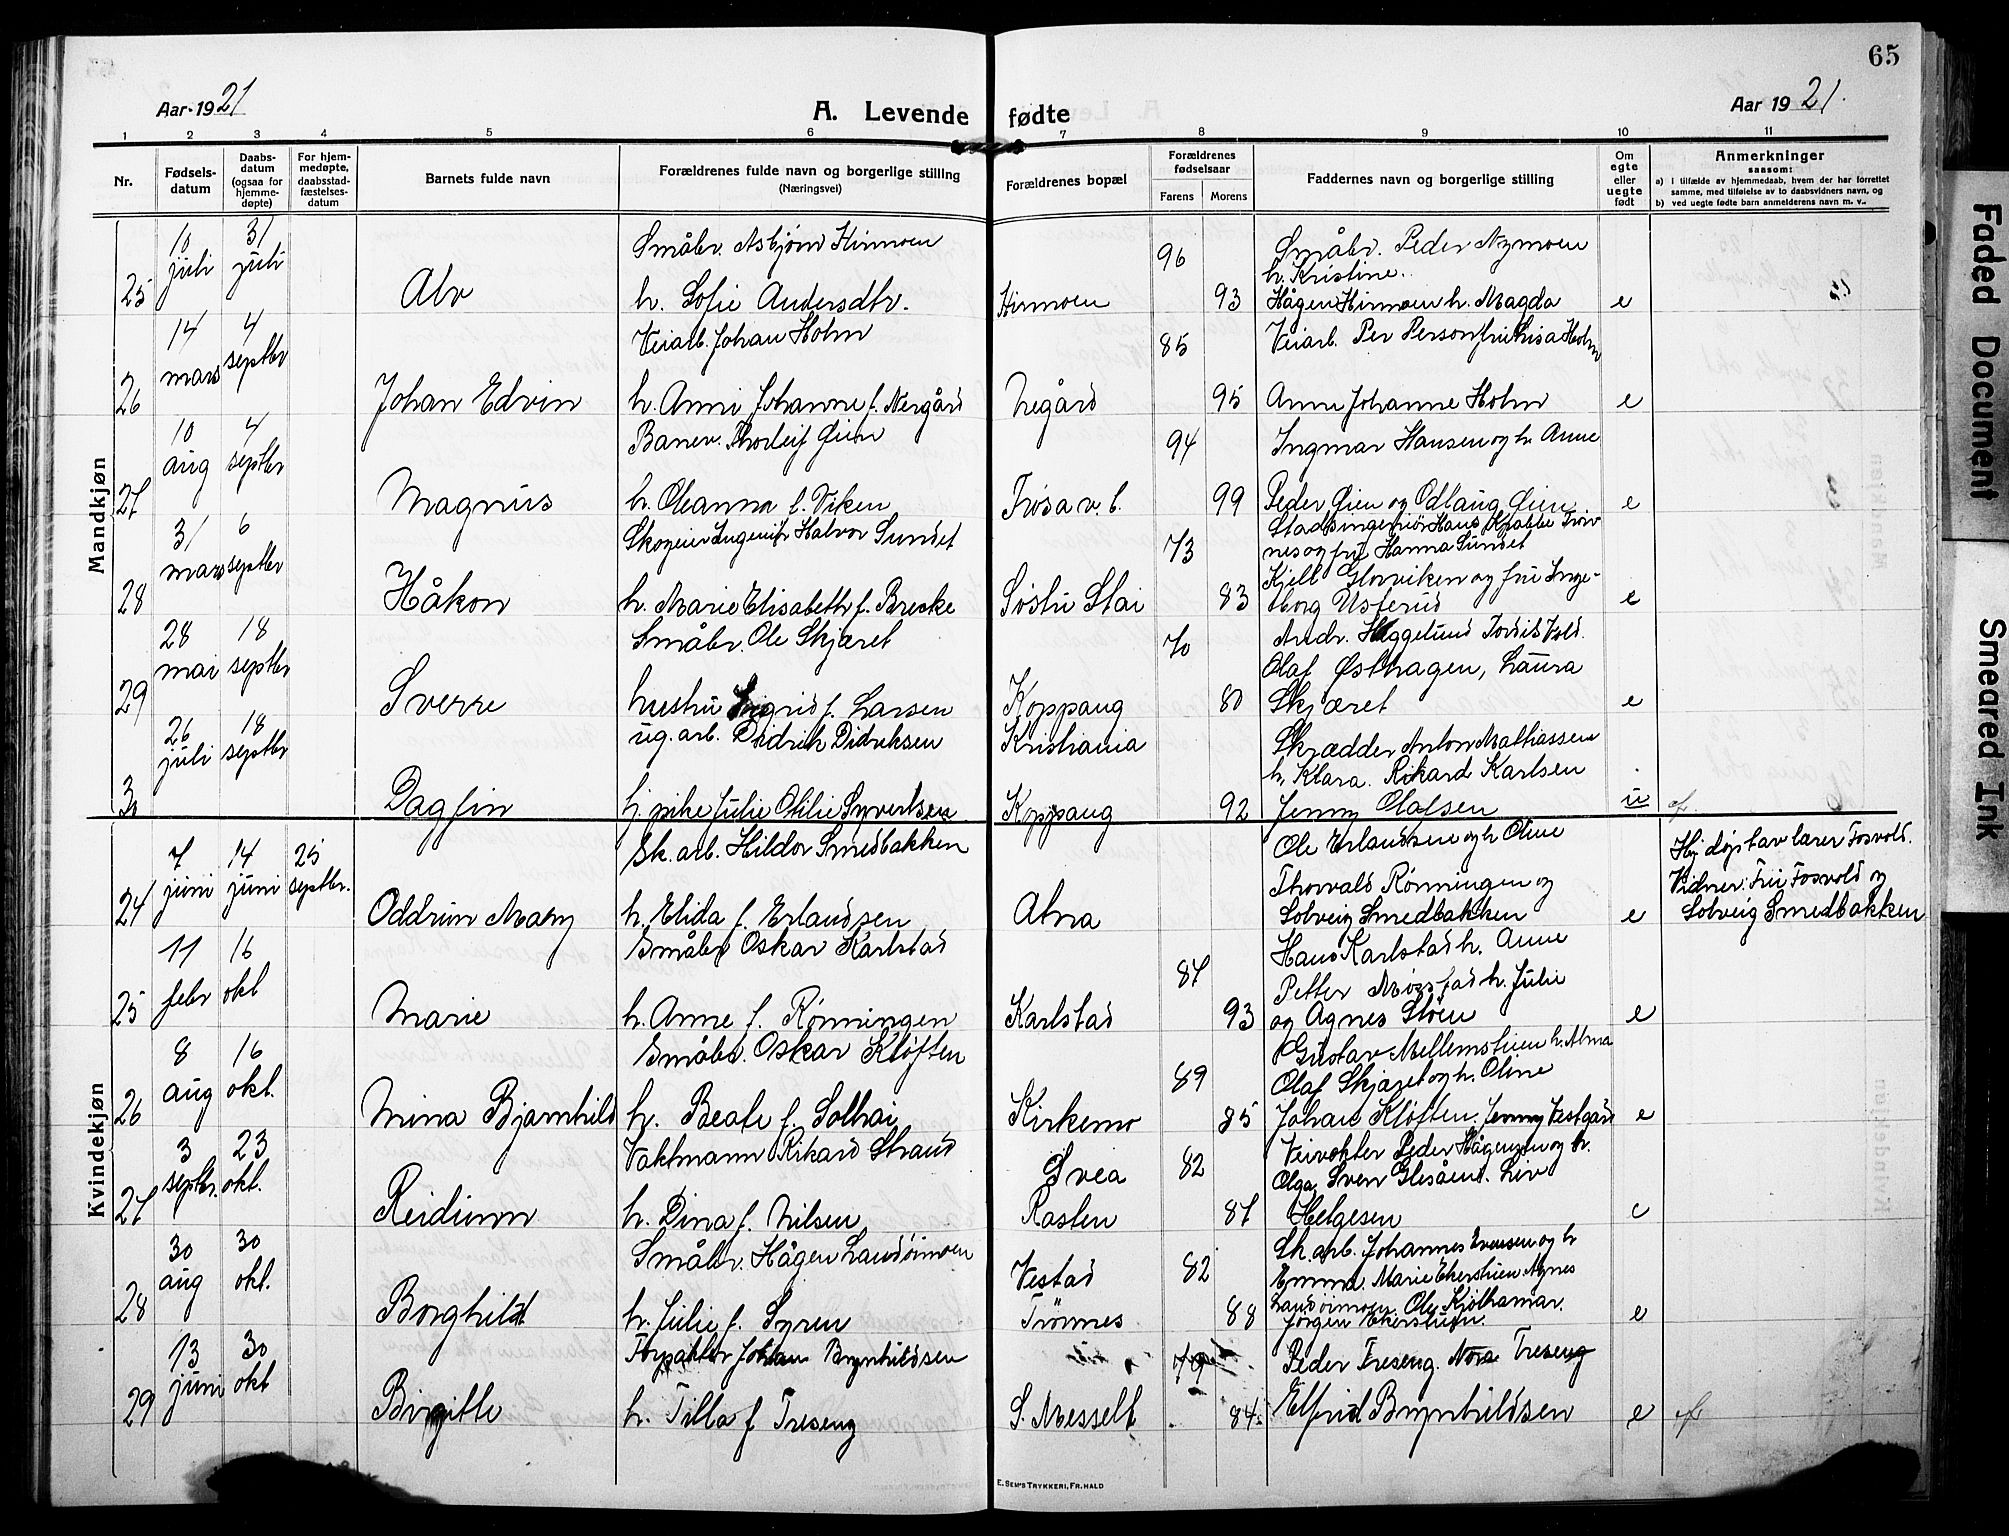 65
Aar 1921
A. Levende fødte
Aar 1921.
1 2 3 4 5 6 7 8 9 10 11
Nr.
Fødsels-
datum
Daabs-
datum
(ogsaa for
hjemme-
døpte)
For hjem-
medøpte,
daabsstad-
fæstelses-
datum
Barnets fulde navn
Forældrenes fulde navn og borgerlige stilling
(Næringsvei)
Forældrenes bopæl
Forældrenes
fødselsaar
Farens Morens
Faddernes navn og borgerlige stilling
Om
egte
eller
uegte
født
Anmerkninger
saasom:
a) I tilfælde av hjemmedaab, hvem der har forrettet
samme, med tilføielse av to daabsvidners navn, og
b) ved uegte fødte barn anmelderens navn m. v..
Mandkjøn
25 10 juli 31 juli
Alv
Småbr. Asbjørn Hirmoen
h. Sofie Andersdtr.
Hirmoen
96 93
Småbr. Peder Nymoen
h. Kristine.
Hågen Hirmoen h. Magda
e
26 14 mars 4 septbr
Johan Edvin
Veiarb. Johan Holm
h. Anni Johanne f. Nergård
Negård
85 95
Veiarb. Per Person fru Lisa Holm
Anne Johanne Holm
e
27 10 aug 4 septbr
Magnus
Banev. Thorleif Øien
h. Oleanna f. Viken
Trøsa v. b.
94 99
Ingmar Hansen og h. Anne
Peder Øien og Odlaug Øien
e
28 31 mars 6 septbr
Håkon
Skogeier Ingeniør Halvor Sundet
h. Marie Elisabeth f. Breske
Søstu Stai
73 83
Stadsingeniør Hans Krabbe
nes og fru Hanna Sundet
Kjell Glorviken og fru Inge-
borg Usterud
e
29 28 mai 18 septbr
Sverre
Småbr. Ole Skjæret
hustru Sigrid f. Larsen
Koppang
70 80
Andr. Heggelund
Olaf Østhagen, Laura
Skjæret
e
30 26 juli 18 septbr
Dagfin
ug. arb. Didrik Didriksen
pike Julie Otilie Syvertsen
Kristiania
Koppang
92
Skrædder Anton Mathiassen
h. Klara. Rikard Karlsen
Jenny Olafsen
u
Kvindekjøn
24 7 juni 14 juni 25 septbr.
Oddrun Mary
Sk. arb. Hildor Smedbakken
h. Elida f. Erlandsen
Atna
Ole Erlandsen og h. Oline
Thorvald Rønningen og
Solveig Smedbakken
e
Hj. døpt av lærer Fosvold.
Vidner: Fru Fosvold og
Solveig Smedbakken
25 11 febr 16 okt
Marie
Småbr Oskar Karlstad
h. Anne f. Rønningen
Karlstad
87 93
Hans Karlstad h. Anne
Petter h. Julie
og Agnes Støen
e
26 8 aug 16 okt.
Mina Bjarnhild
Småbr. Oskar Kløften
h. Beate f. Solhai
Kirkemo
89 85
Gustav Mellemstuen h. Alma
Olaf Skjæret og h. Oline
Johan Kløften. Jenny Vestgård
e
27 3 septbr. 23 okt.
Reidunn
Vaktmann Rikard Strand
h. Dina f. Nilsen
Svea
Rasten
82 87
Veivokter Peder Hågensen og h.
Olga, Sven Glesåen. Liv
Helgesen
e
28 30 aug 30 okt.
Borghild
Småbr. Hågen Landøimoen
h. Julie f. Syren
Vestad
Trønnes
82 88
Sk. arb. Johannes Evensen og h
Emma. Marie Ekerstuen. Agnes
Landøimoen. Ole Kjølhamar.
Jørgen Ekerstuen.
e
29 13 juni 30 okt
Birgitte
Forpakter Johan Brynhildsen
h. Tilla f Treseng
S. Messelt
79 84
Peder Treseng. Nora Treseng
Elfrid Brynhildsen
e
E. SEM'S TRYKKERI, FR.HALD
Faded Document
Smeared Ink